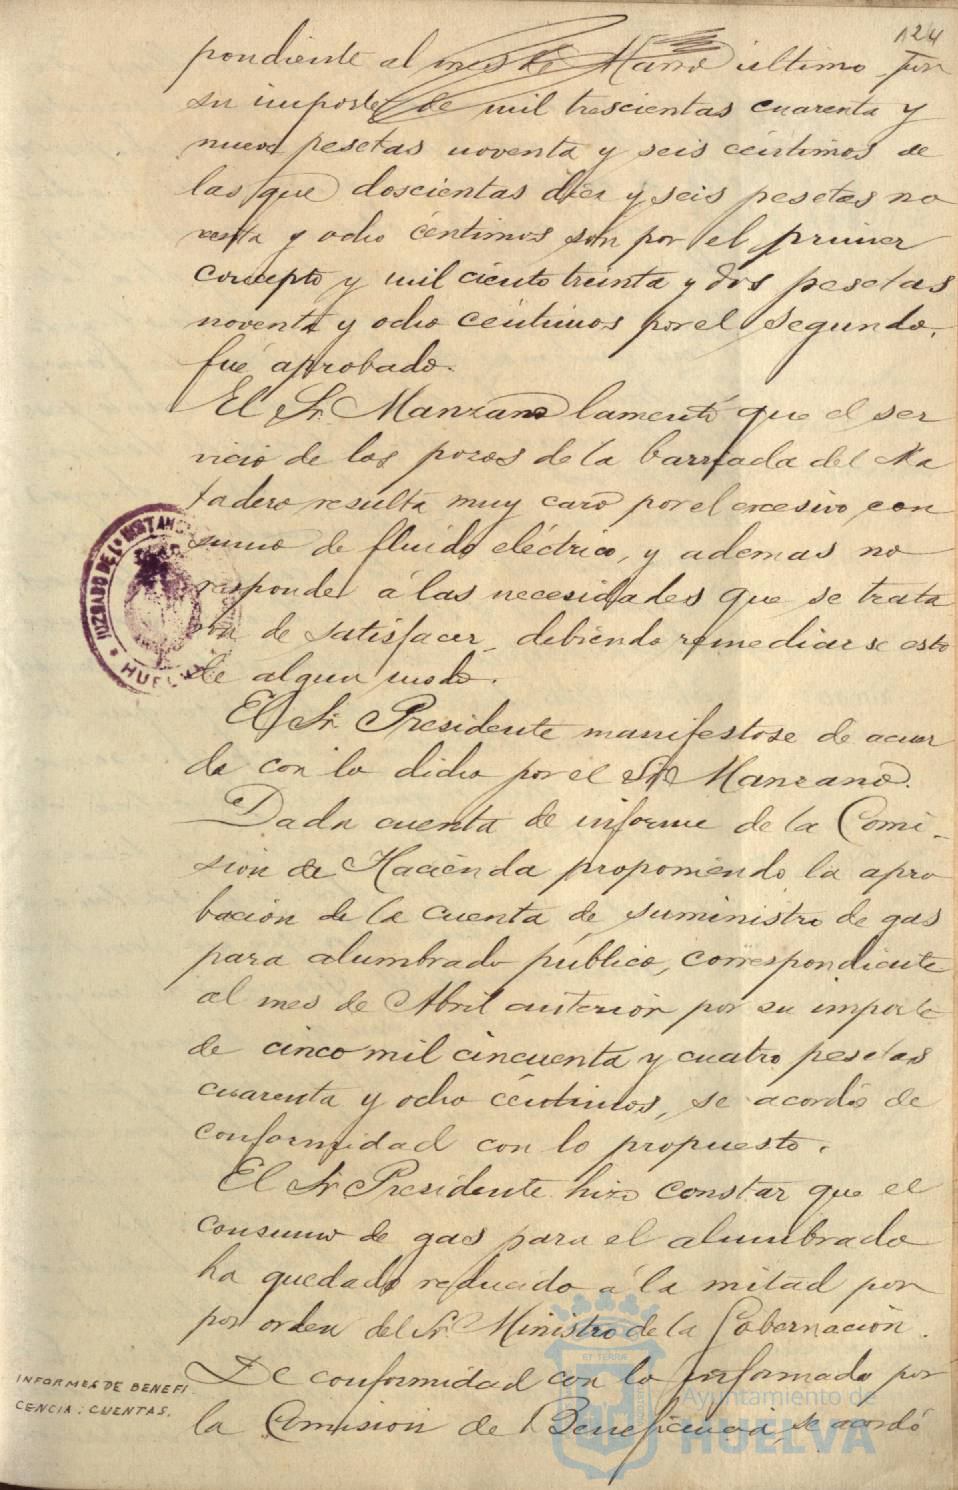 124
pondiente al mes de Marzo ultimo por
su importe de mil trescientas cuarenta y
nueve pesetas noventa y seis céntimos de
las que doscientas diez y seis pesetas no
venta y ocho céntimos son por el primer
concepto y mil ciento treinta y dos pesetas
noventa y ocho céntimos por el segundo,
fué aprobado.
El Sr. Manzano lamentó que el ser
vicio de los pozos de la barriada del Ma
tadero resulta muy caro por el excesivo con
sumo de fluido eléctrico, y ademas no
responder á las necesidades que se trata
ron de satisfacer, debiendo remediarse esto
de algun modo.
El Sr. Presidente manifestose de acuer
do con lo dicho por el Sr. Manzano.
Dada cuenta de informe de la Comi-
sion de Hacienda proponiendo la apro
bación de la cuenta de suministro de gas
para alumbrado público, correspondiente
al mes de Abril anterior por su importe
de cinco mil cincuenta y cuatro pesetas
cuarenta y ocho céntimos, se acordó de
conformidad con lo propuesto.
El Sr. Presidente hizo constar que el
consumo de gas para el alumbrado
ha quedado reducido á la mitad por
por orden del Sr. Ministro de la Gobernación.
INFORMES DE BENEFI
CENCIA: CUENTAS.
De conformidad con lo informado por
la Comision de Beneficencia, se acordó
JUZGADO DE 1ª INSTANCIA
HUELVA
Ayuntamiento de
HUELVA